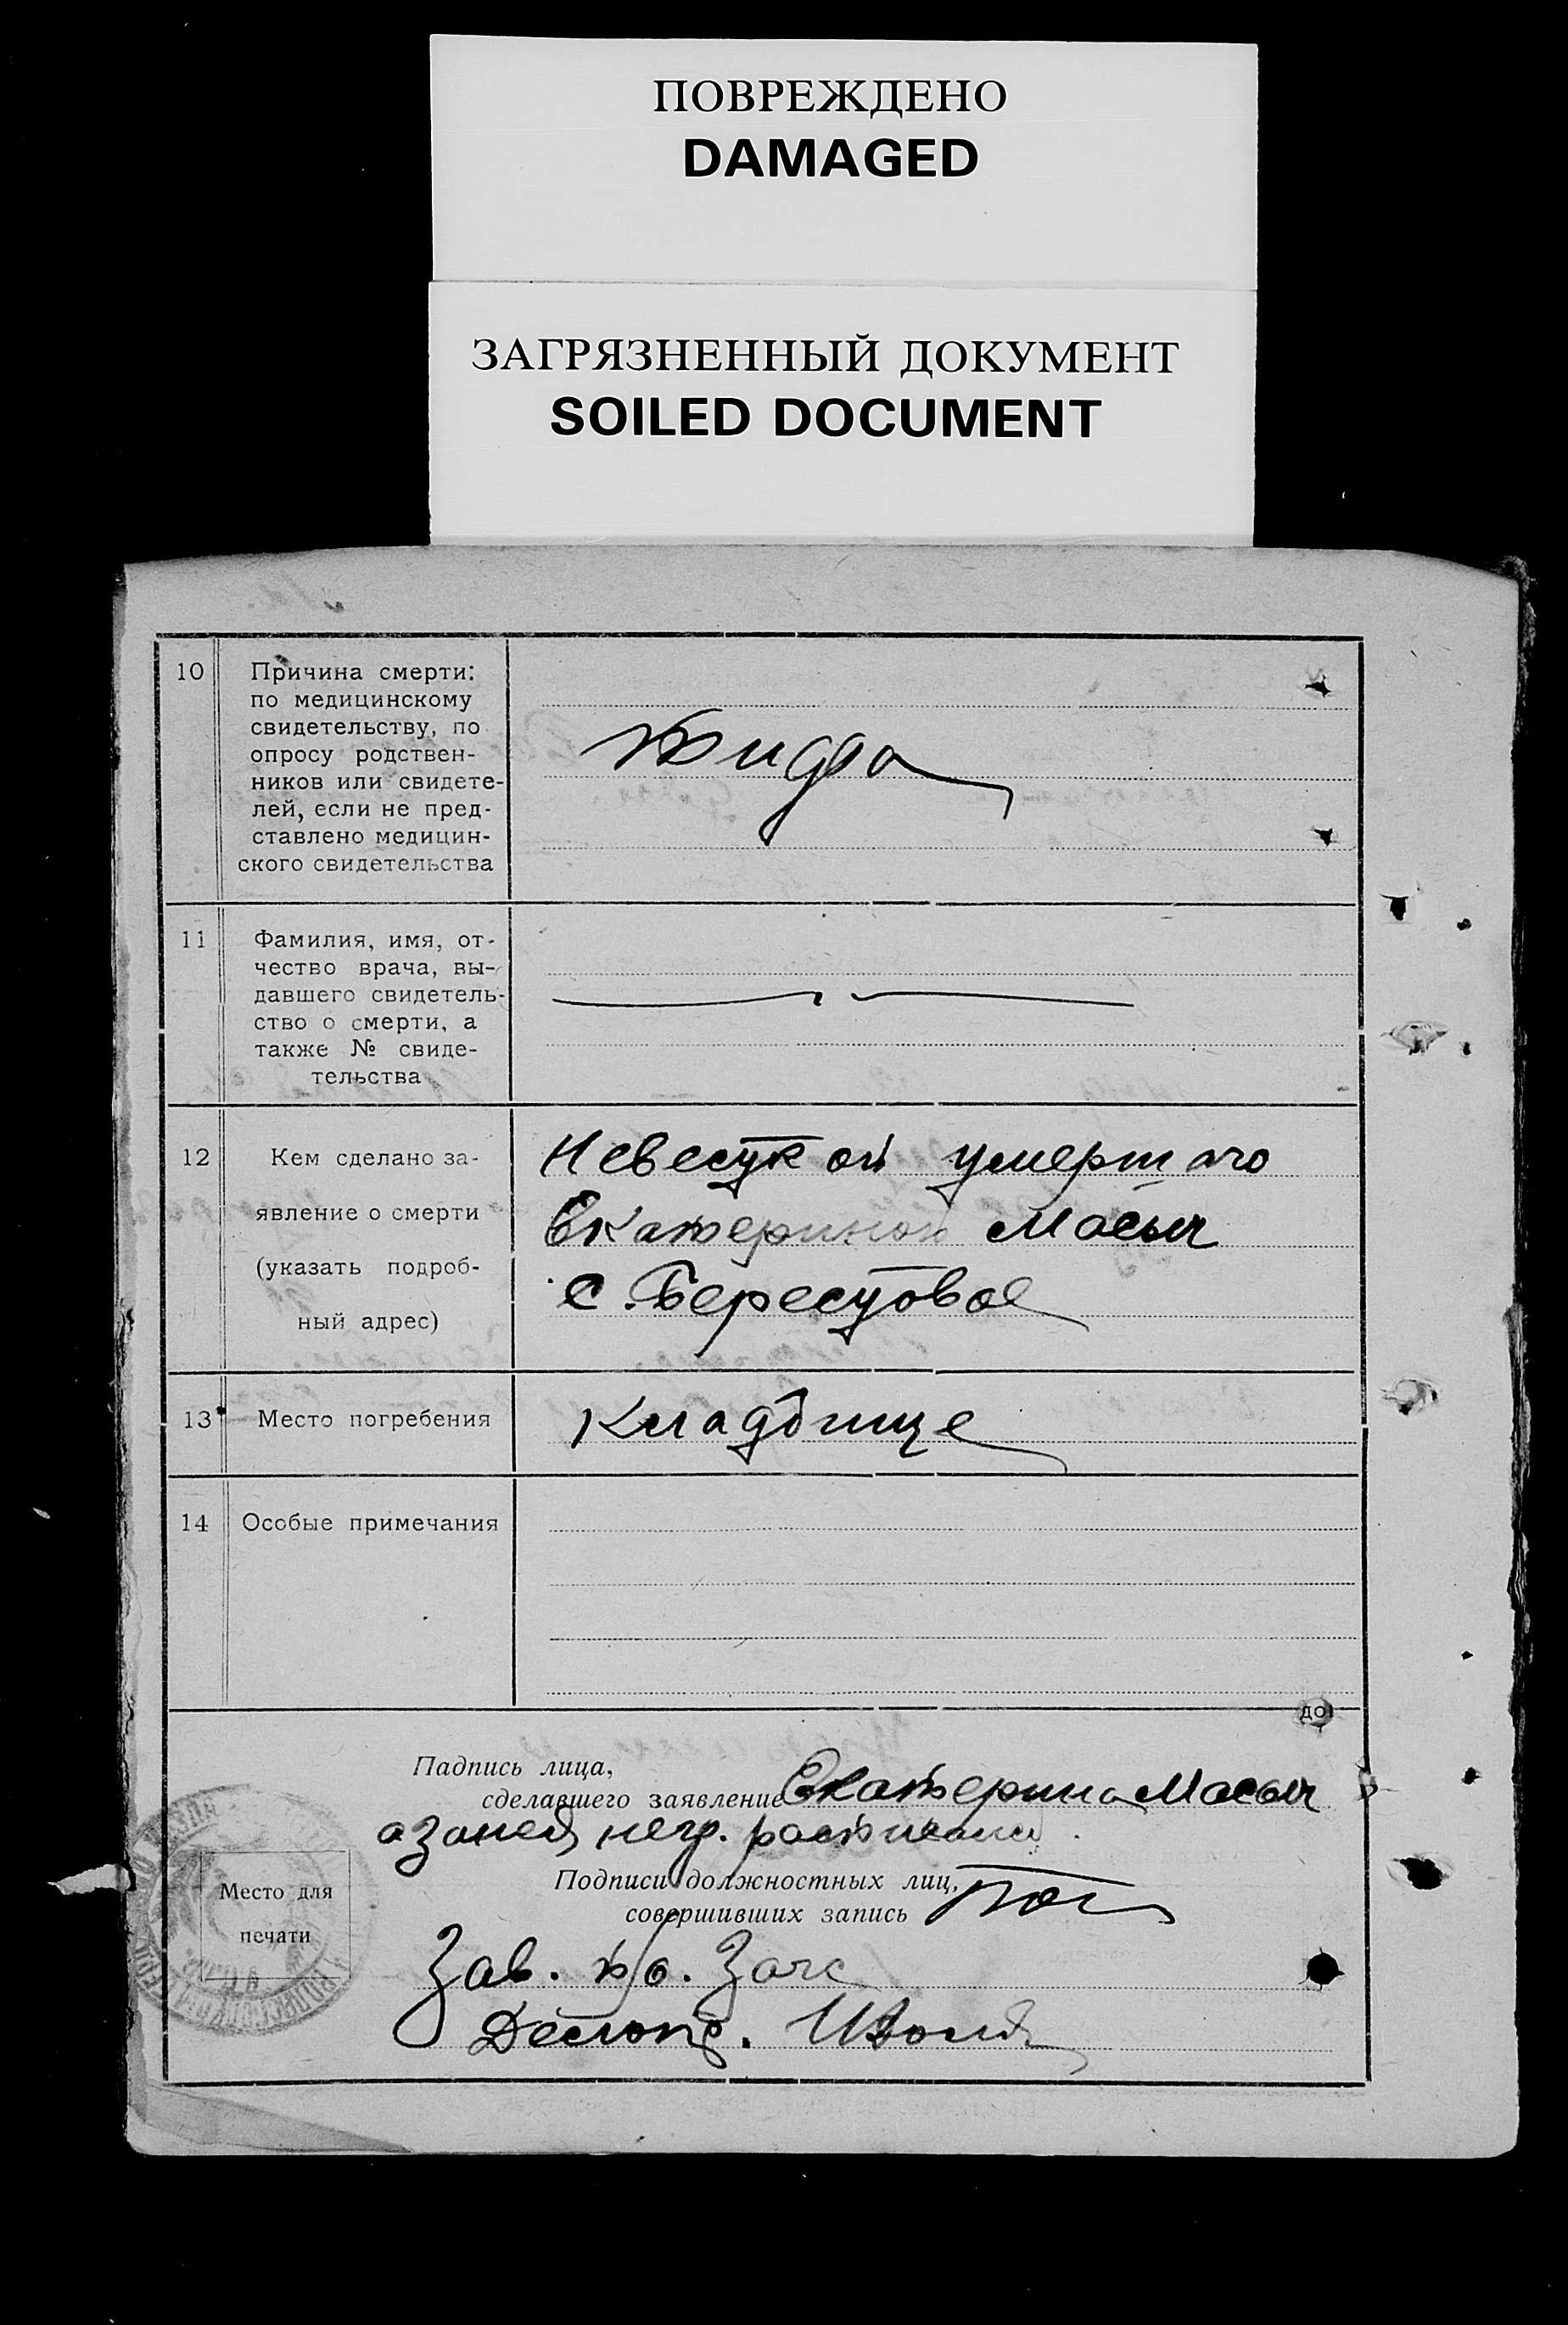 ПОВРЕЖДЕНО
DAMAGED
ЗАГРЯЗНЕННЫЙ ДОКУМЕНТ
SOILED DOCUMENT
10
Причина смерти:
по медицинскому
свидетельству, по
опросу родствен-
ников или свидете-
лей, если не пред-
ставлено медицин-
ского свидетельства
11
Фамилия, имя, от-
чество врача, вы-
давшего свидетель-
ство о смерти, а
также № свиде-
тельства
12
Кем сделано за-
явление о смерти
(указать подроб-
ный адрес)
Невесткой умершого
Екатериной Масыч
с. Берестовое
13
Место погребения
Кладбище
14
Особые примечания
до
Падпись лица,
сделавшего заявление Екатерина Масыч
а за ней негр.
Подписи должностных лиц,
совершивших запись
Место для
печати
Зав. р/о. Загс
Делопр.